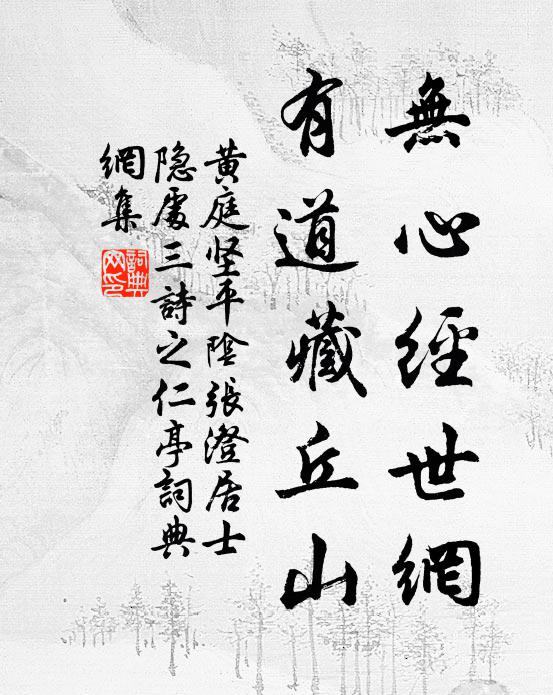 無心經世網
有道藏丘山
黄庭坚平陰張澄居士
隐處三詩之仁亭詞典
網集
詞典
網印